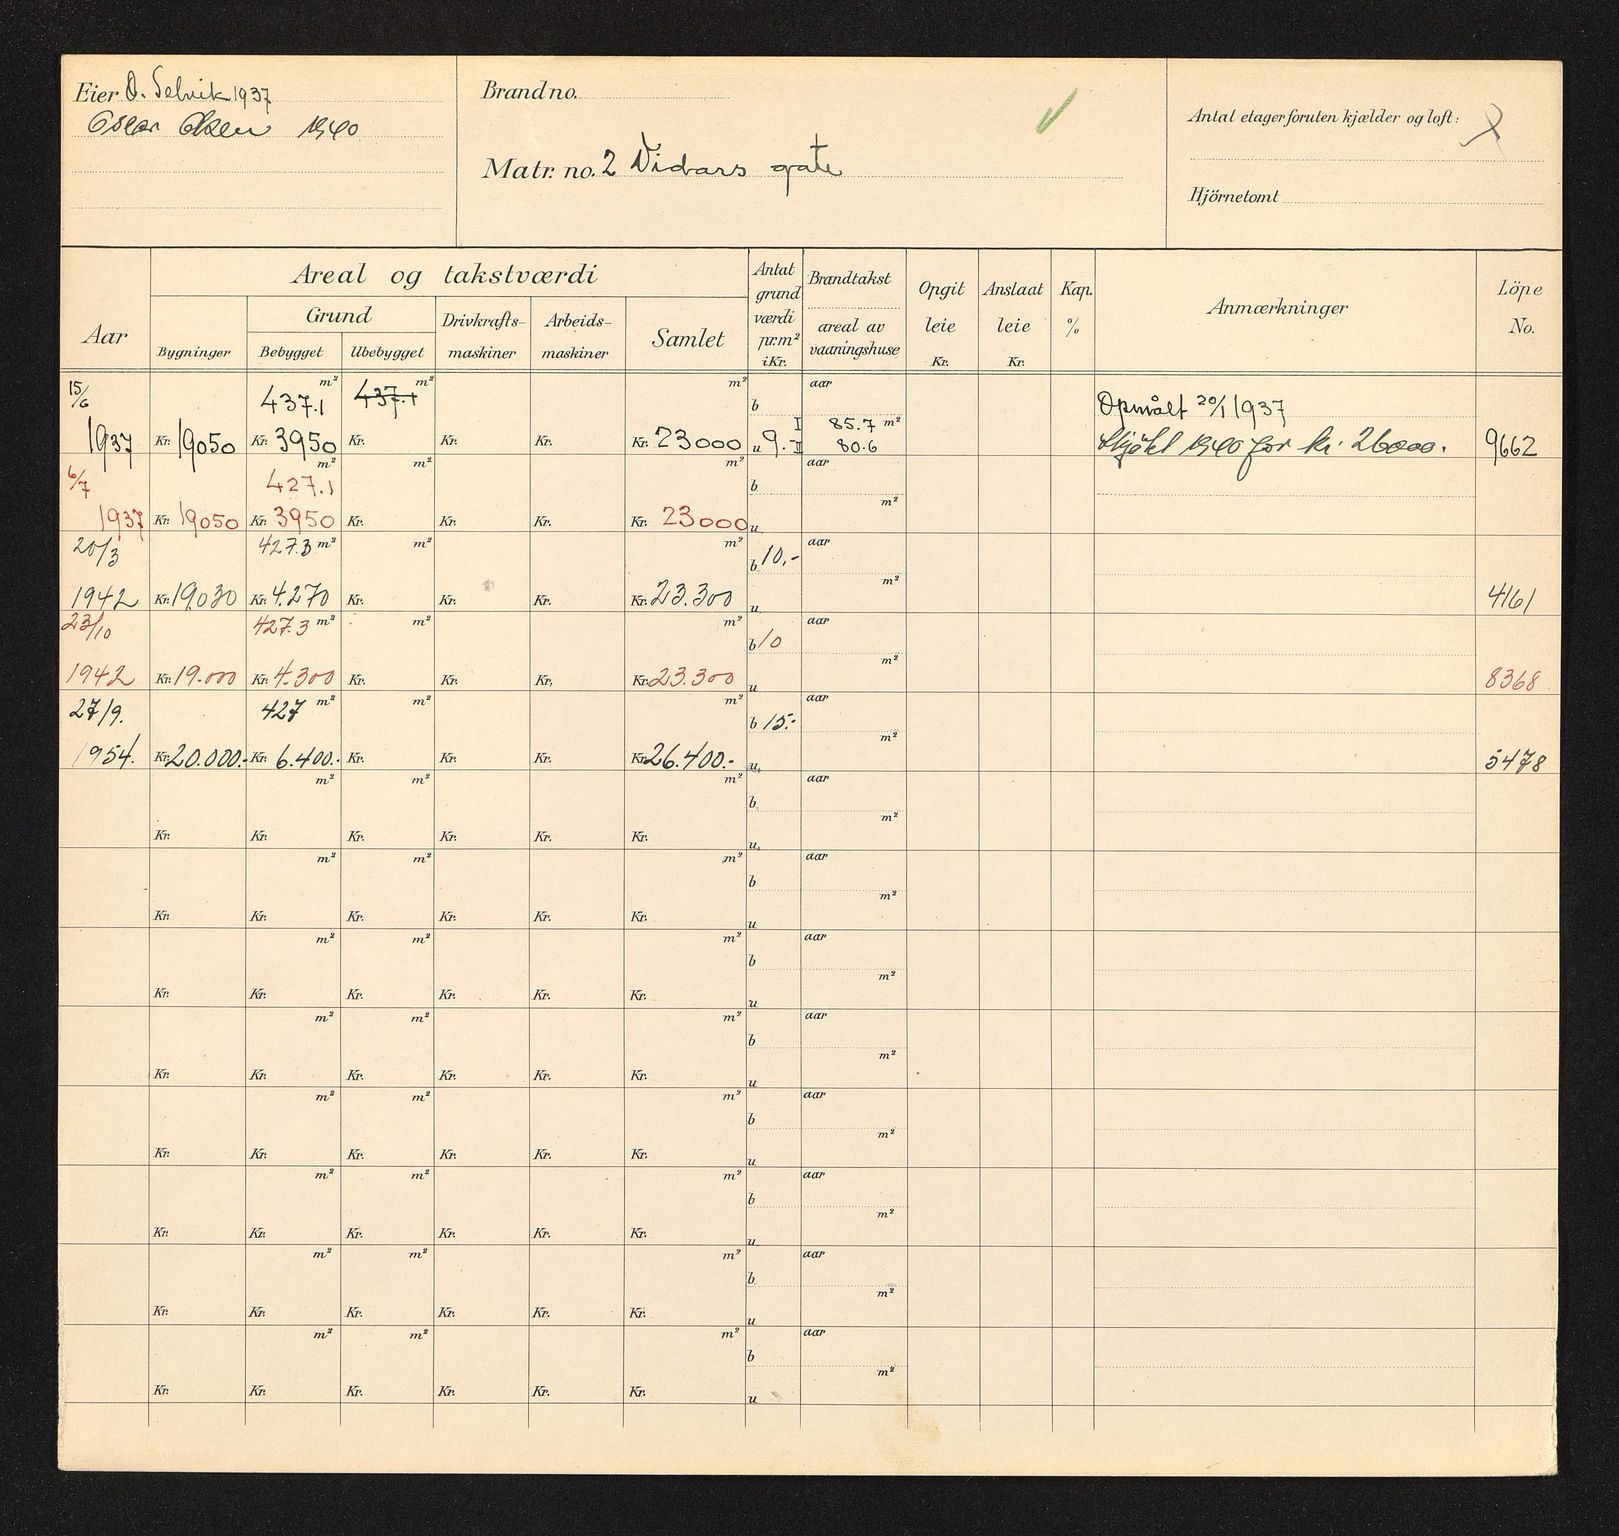 Eier O. Selvik 1937
Oscar Olsen 1940
Brandno.
Matr. no. 2 Vidars gate
Antal etager foruten kjælder og loft:
Hjörnetomt
Aar
Areal og takstværdi
Bygninger
Grund
Bebygget
Ubebygget
Drivkrafts-
maskiner
Arbeids-
maskiner
Samlet
Antat
grund
værdi
pr.m²
i Kr.
Brandtakst
areal av
vaaningshuse
Opgit
leie
Kr.
Anslaat
leie
Kr.
Kap.
%
Anmærkninger
Löpe
No.
15/6 437.1 m² 437.1 m² m² b aar Opmålt 20/1 1937
1937 Kr. 19050 Kr. 3950 Kr. Kr. Kr. Kr. 23000 u 9.- I 85.7 m² II 80.6 Skjökt 1940 for kr. 26000. 9662
6/7 427.1 m² m² m² b aar
1937 Kr. 19050 Kr. 3950 Kr. Kr. Kr. Kr. 23000 u m²
20/3 427.3 m² m² m² b 10,- aar
1942 Kr. 19.030 Kr. 4.270 Kr. Kr. Kr. Kr. 23.300 u m² 4161
23/10 427.3 m² m² m² b 10 aar
1942 Kr. 19.000 Kr. 4.300 Kr. Kr. Kr. Kr. 23.300 u m² 8368
27/9. 427 m² m² m² b 15.- aar
1954. Kr. 20.000.- Kr. 6.400.- Kr. Kr. Kr. Kr. 26.400.- u m² 5478
m² m² m² b aar
Kr. Kr. Kr. Kr. Kr. Kr. u m²
m² m² m² b aar
Kr. Kr. Kr. Kr. Kr. Kr. u m²
m² m² m² b aar
Kr. Kr. Kr. Kr. Kr. Kr. u m²
m² m² m² b aar
Kr. Kr. Kr. Kr. Kr. Kr. u m²
m² m² m² b aar
Kr. Kr. Kr. Kr. Kr. Kr. u m²
m² m² m² b aar
Kr. Kr. Kr. Kr. Kr. Kr. u m²
m² m² m² b aar
Kr. Kr. Kr. Kr. Kr. Kr. u m²
m² m² m² b aar
Kr. Kr. Kr. Kr. Kr. Kr. u m²